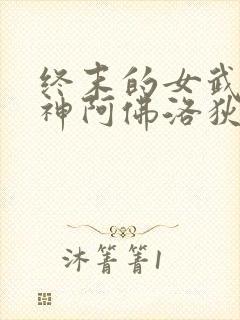 终末的女武
神阿佛洛狄
沐箐箐1